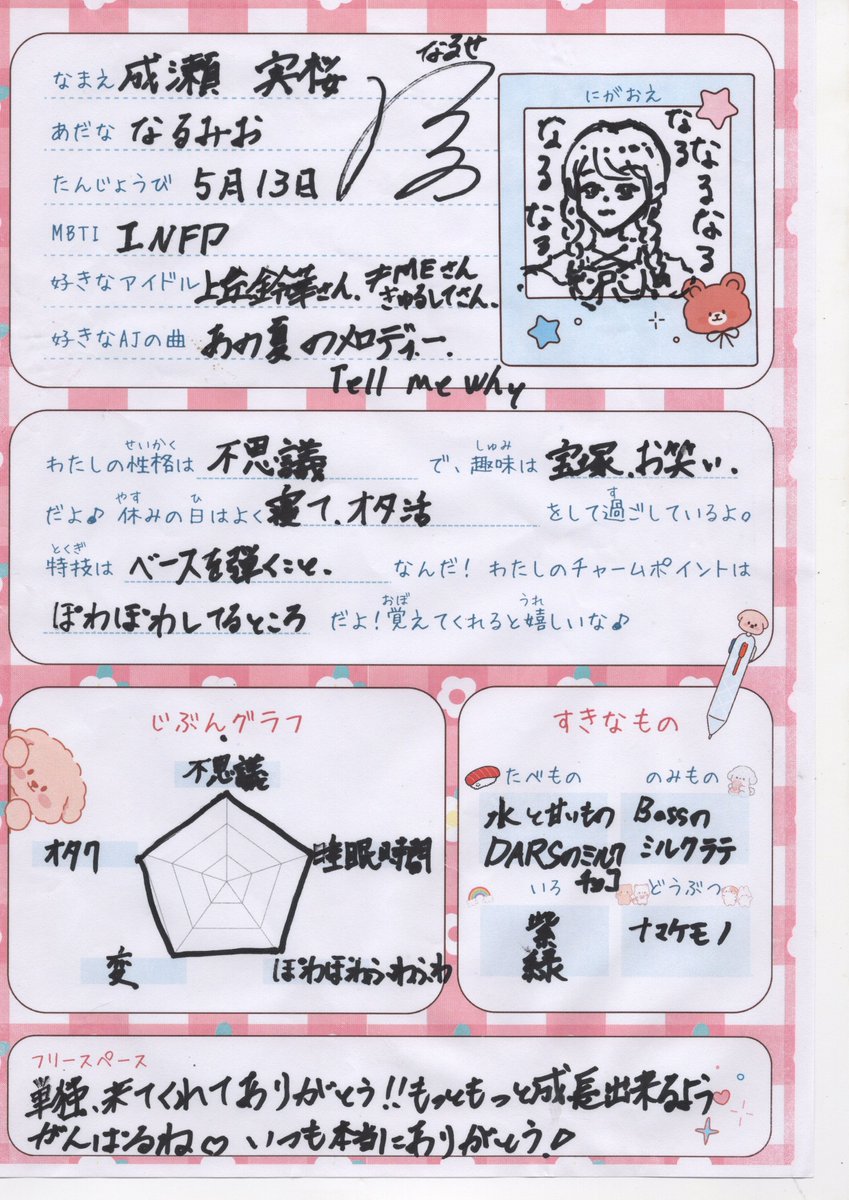 なまえ 成瀬 実桜
なるせ
あだな なるみお
たんじょうび 5月13日
MBTI INFP
好きなアイドル 上丘鈴華さん、≠MEさん
きゅるしてさん。
好きなAJの曲 あの夏のメロディー、
Tell me why
にがおえ
なる
なる
なる
なる
なる
せいかく しゅみ
わたしの性格は 不思議 で、趣味は 宝塚、お笑い、
やす ひ す
だよ♪ 休みの日はよく 寝て、オタ活 をして過ごしているよ。
とくぎ
特技は ベースを弾くこと、 なんだ! わたしのチャームポイントは
おぼ うれ
ぽわぽわしてるところ だよ!覚えてくれると嬉しいな♪
じぶんグラフ
不思議
オタク
睡眠時間
変
ぽわぽわふわふわ
すきなもの
たべもの のみもの
水と甘いもの
DARSのミルク
チョコ
Bossの
ミルクラテ
いろ どうぶつ
紫
緑
ナマケモノ
フリースペース
単極、来てくれてありがとう!!もっともっと成長出来るよう
がんばるね♡ いつも本当にありがとう♪